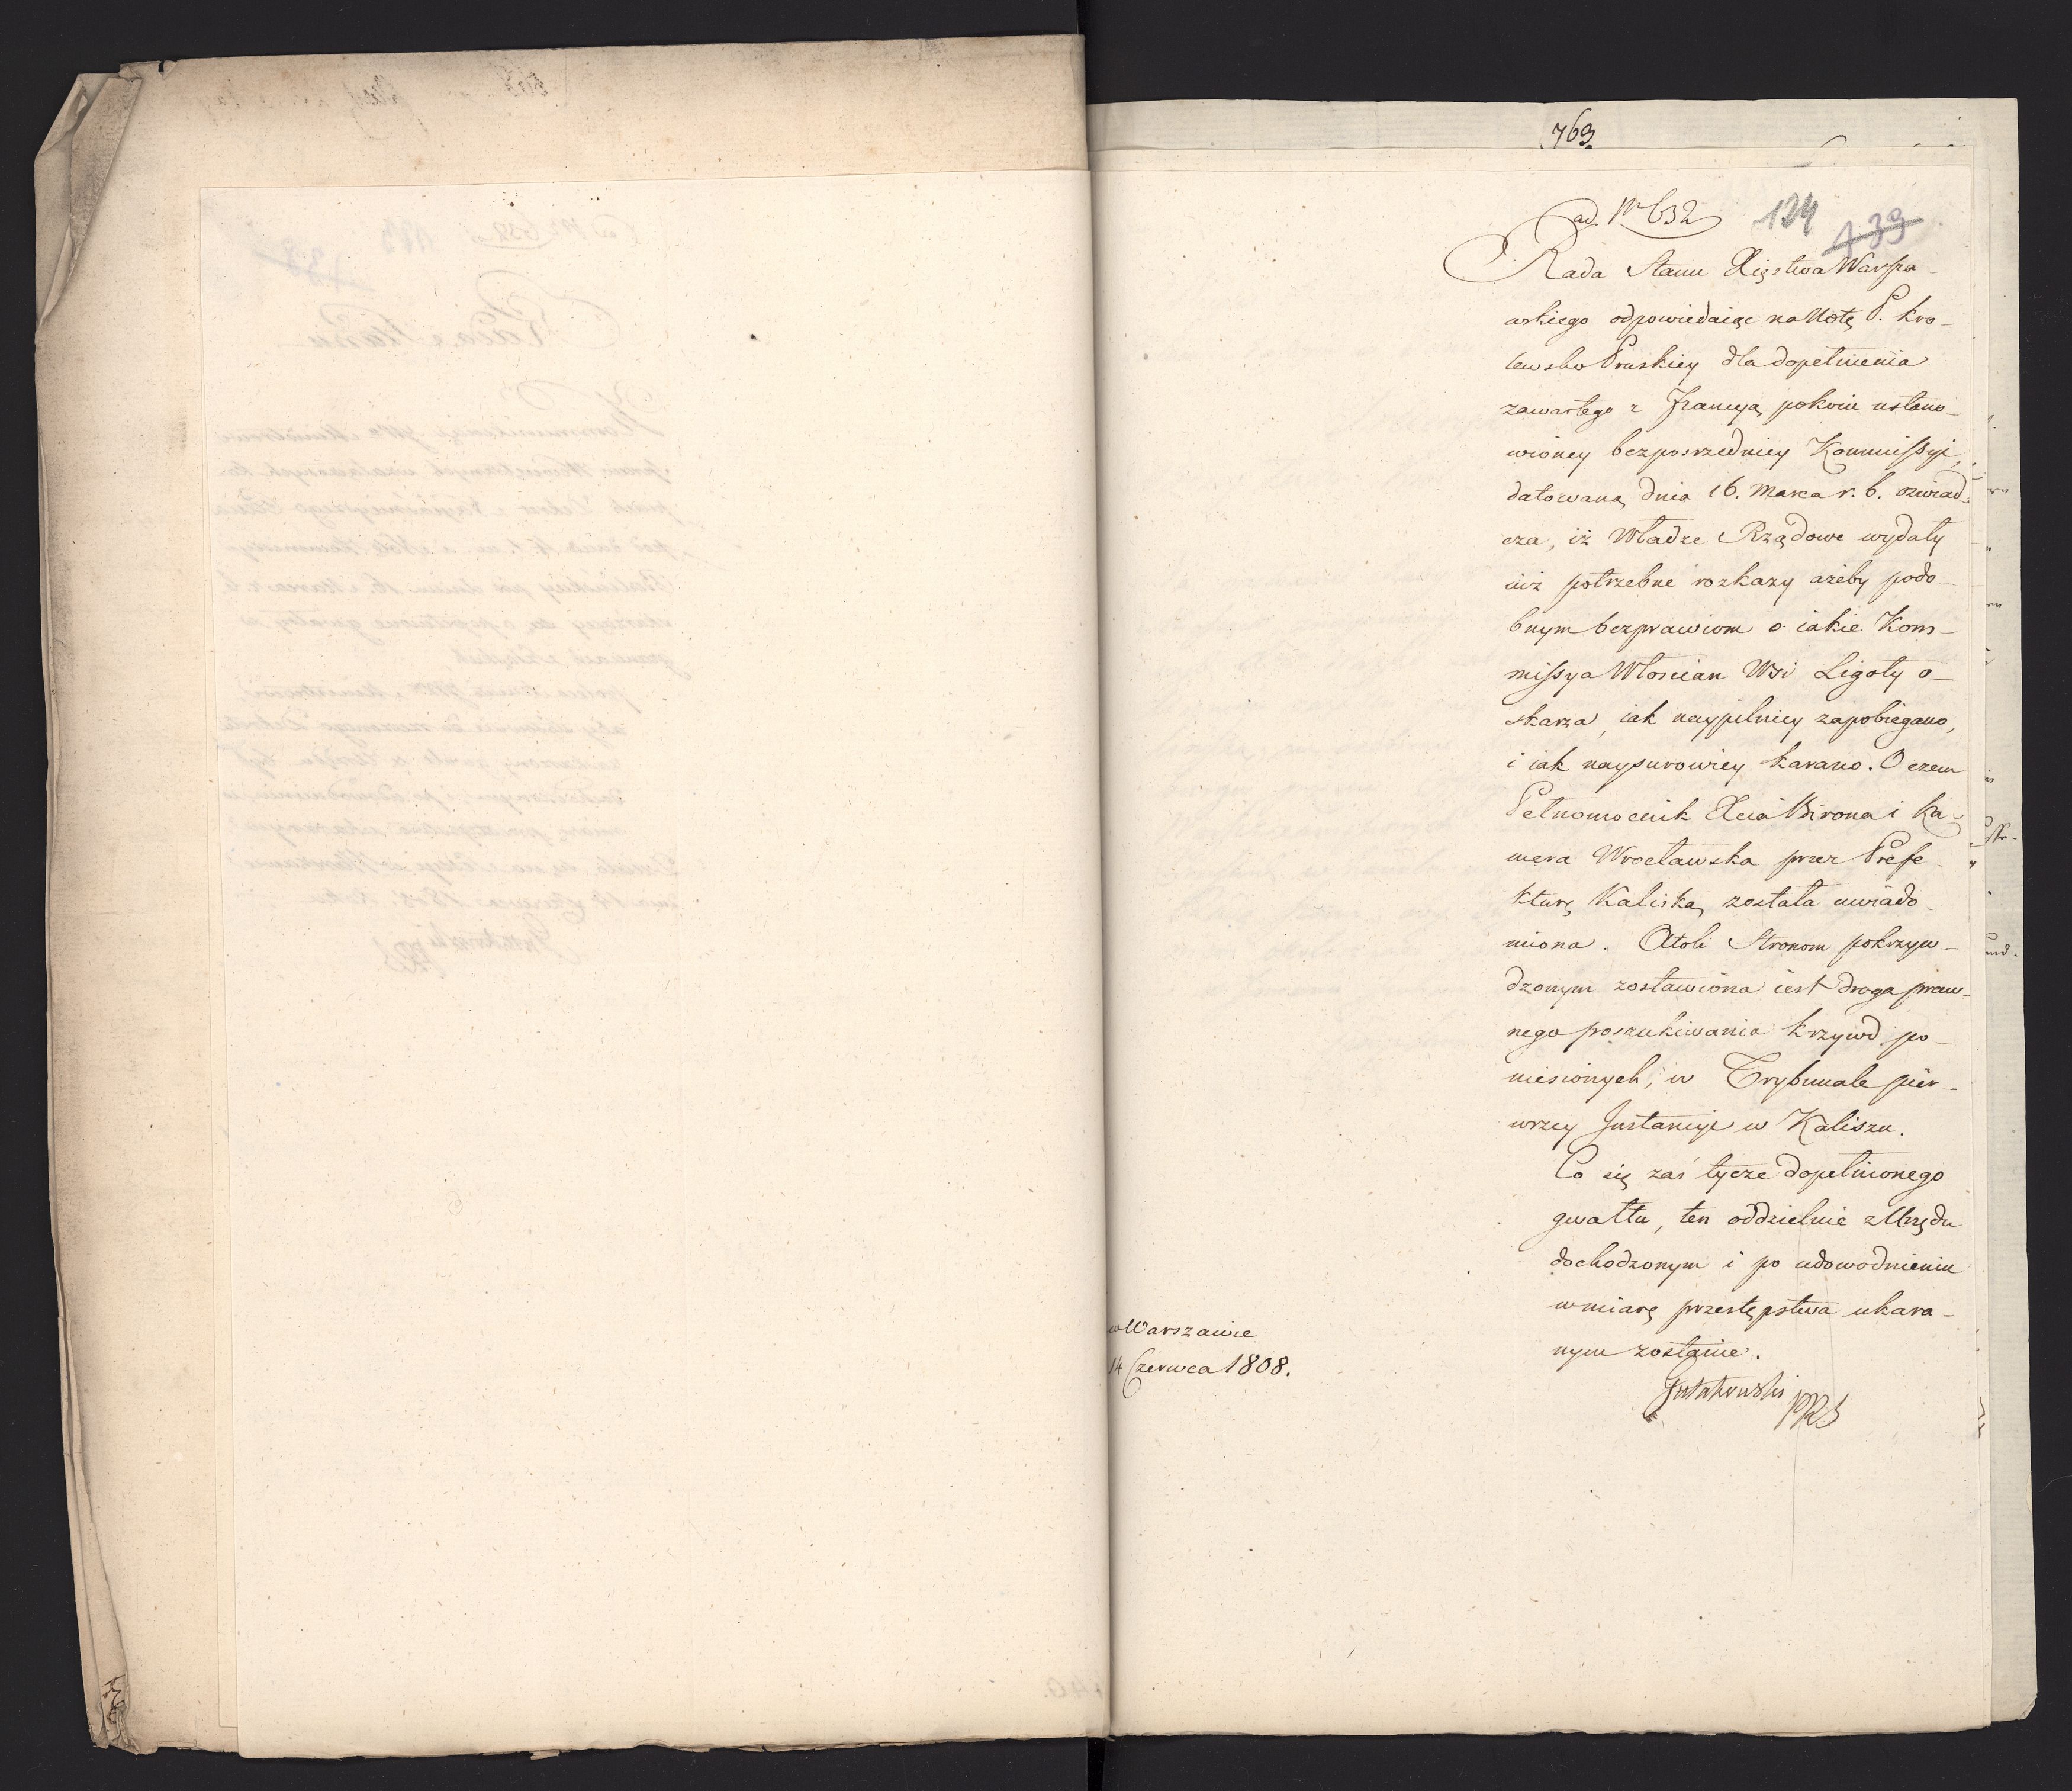 763.
ad. Nr 632 124 439
Rada Stanu Xięstwa Warsza-
wskiego odpowiedaiąc na Notę P. Kro-
lewsko Pruskiey dla dopełnienia
zawartego z Francyą pokoiu ustano-
wioney bezposrzedniey Kommissyi,
datowaną dnia 16. Marca r. b. oswiad-
cza, iż Władze Rządowe wydały
iuż potrzebne rozkazy ażeby podo-
bnym bezprawiom o iakie Kom-
missya Włoscian Wsi Ligoty o-
skarza, iak naypilniey zapobiegano,
i iak naysurowiey karano. O czem
Pełnomocnik Xcia Birona i Ka-
mera Wrocławska przez Prefe-
kturę Kaliską została uwiado-
miona. Atoli Stronom pokrzyw-
dzonym zostawiona iest droga praw-
nego poszukiwania krzywd po-
niesionych, w Trybunale pier-
wszey Instancyi w Kaliszu.
Co się zaś tycze dopełnionego
gwałtu, ten oddzielnie z Urzędu
dochodzonym i po udowodnieniu
w miarę przestępstwa ukara-
nym zostanie.
w Warszawie
14 Czerwca 1808.
Gutakowski PRS